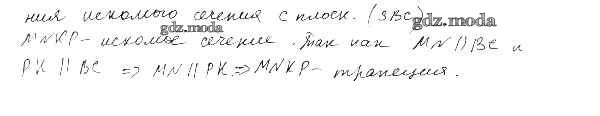 ния искомого сечения с плоск. (SBC)
gdz.moda
gdz.moda
MNKP - искомое сечение. Так как MN || BC и
PK || BC => MN || PK => MNKP - трапеция.